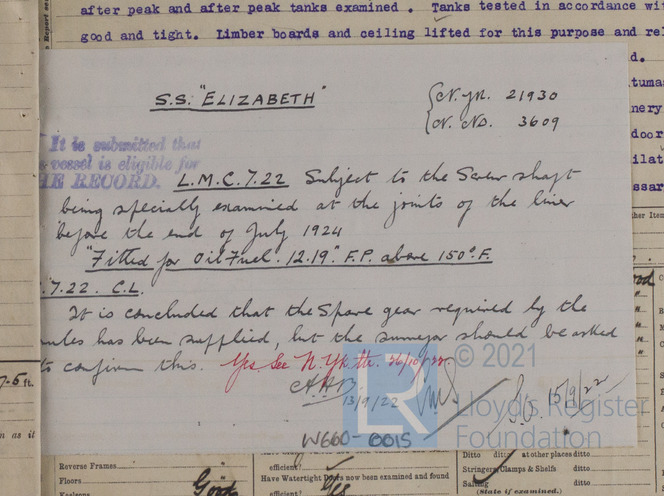 after peak and after peak tanks examined. Tanks tested in accordance wi
good and tight. Limber boards and ceiling lifted for this purpose and re
d.
S.S. "ELIZABETH"
N. YK. 21930
N. NO. 3609
It is submitted that
vessel is eligible for
THE RECORD. L.M.C. 7.22 Subject to the Screw shaft
being specially examined at the joints of the liner
before the end of July 1924
"Fitted for Oil Fuel. 12.19". F.P. above 150°. F.
7.22. C.L.
It is concluded that the Spare gear required by the
rules has been supplied, but the surveyor should be asked
to confirm this. Yes. See N. Yk
13/9/22
15/9/22
W660-0015
© 2021
Lloyd's Register
Foundation
7-5 ft.
n as it
Reverse Frames
Floors
Good
efficient?
Have Watertight Doors now been examined and found
efficient? Yes
Ditto ditto at other places ditto
Stringers, Clamps & Shelfs ditto
Salting ditto
(State if examined.)